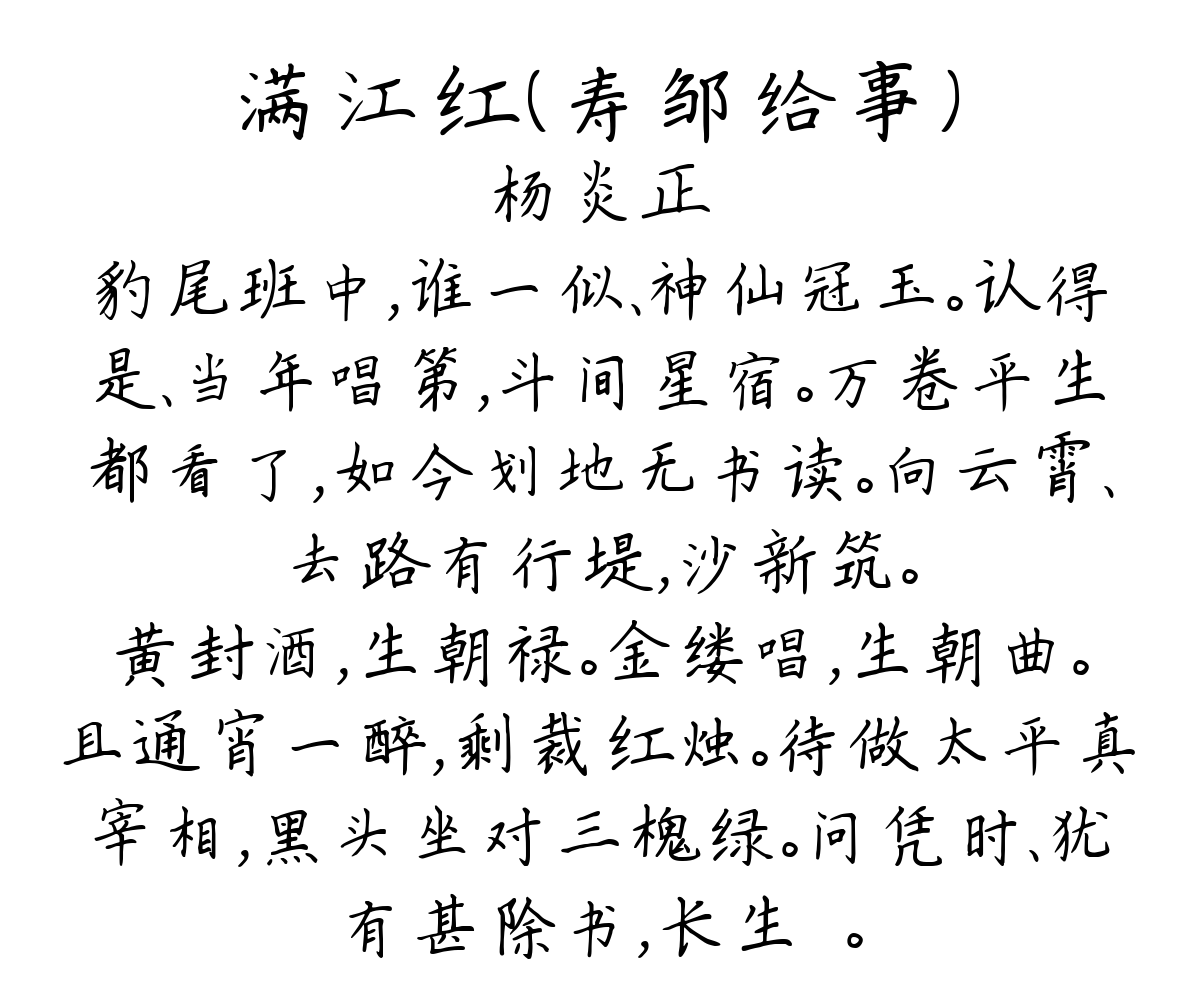 满江红(寿邹给事)
杨炎正
豹尾班中,谁一似、神仙冠玉。认得
是、当年唱第,斗间星宿。万卷平生
都看了,如今划地无书读。向云霄、
去路有行堤,沙新筑。
黄封酒,生朝禄。金缕唱,生朝曲。
且通宵一醉,剩裁红烛。待做太平真
宰相,黑头坐对三槐绿。问凭时、犹
有甚除书,长生 。